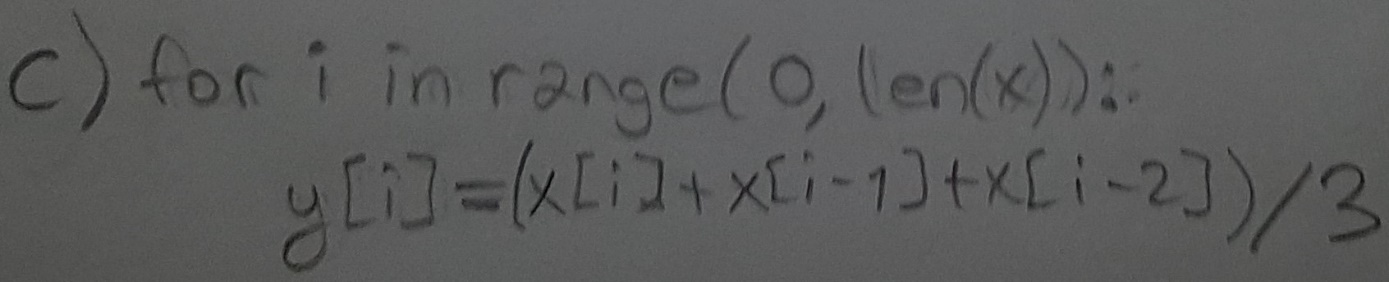 c) for i in range(0, len(x)):
y[i]=(x[i]+x[i-1]+x[i-2])/3